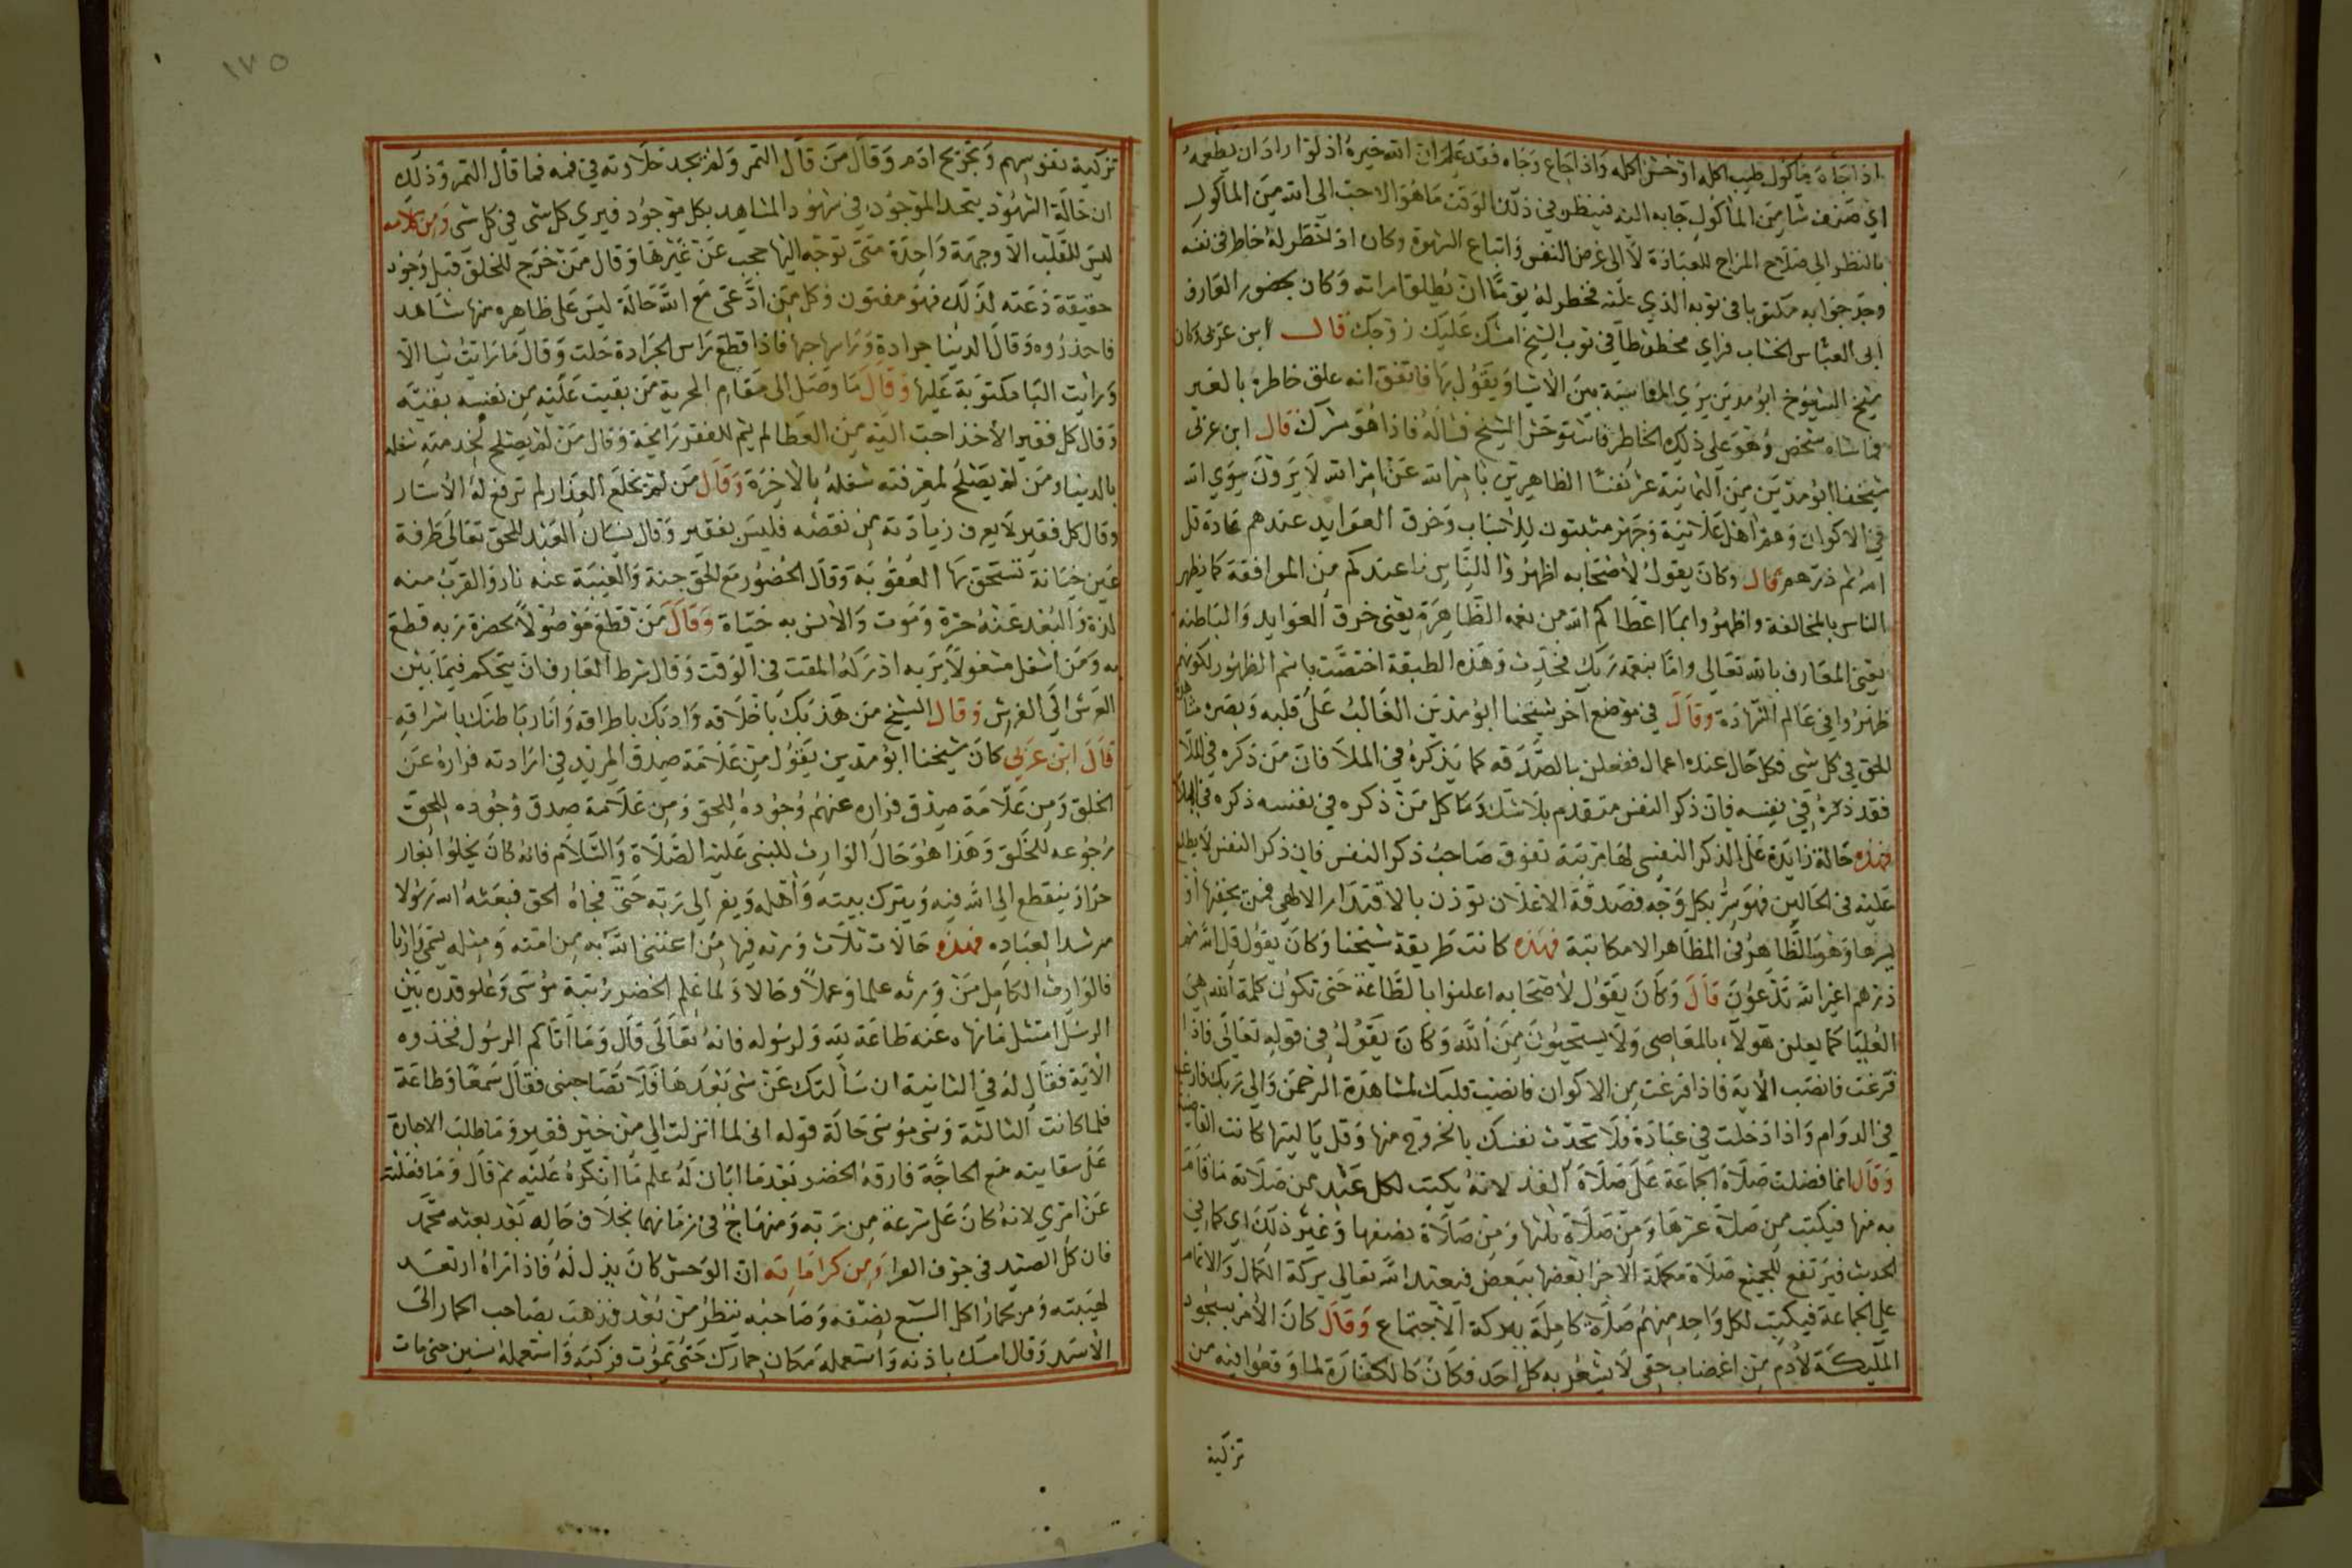 اذا جاه ماكول طيب اكله او خشن اكله واذا جاع وجاه فقد علم ان الله خيره اذ لو اراد ان يطعمه
اي صنف شا من الماكول جابه اليه فينظر في ذلك الوقت ما هو الاحب الى الله من الماكول
بالنظر الى صلاح المزاج للعبادة لا الى غرض النفس واتباع الشهوة وكان اذا خطر له خاطر في نفسه
وجد جوابه مكتوبا في ثوبه الذي عليه فخطر له يوما ان يطلق امراته وكان بحضور العارف
ابى العباس الخشاب فراي مخطوطا في ثوب الشيخ امسك عليك زوجك قال ابن عربى وكان
شيخ الشيوخ ابو مدين يري المناسبة بين الاشيا ويقول بها فاتفق انه علق خاطره بالغير
فماشاه شخص وهو على ذلك الخاطر فاستوحش الشيخ فساله فاذا هو مشرك قال ابن عربى
شيخنا ابو مدين من الثمانية عشر نفسا الظاهرين بامر الله عن امر الله لا يرون سوي الله
في الاكوان وهم اهل علانية وجهر مثبتون للاسباب وخرق العوايد عندهم عادة قل
الله ثم ذرهم قال وكان يقول لاصحابه اظهروا للناس ما عندكم من الموافقة كما يظهر
الناس بالمخالفة واظهروا بما اعطاكم الله من نعمه الظاهرة يعنى خرق العوايد والباطنة
يعنى المعارف بالله تعالى واما بنعمة ربك فحدث وهذه الطبقة اختصت باسم الظهور لكونهم
ظهروا في عالم الشهادة وقال في موضع آخر شيخنا ابو مدين الغالب على قلبه وبصره مشاهدة
الحق في كل شى فكل حال عنده اعمال ففعلن بالصدقه كما يذكره في الملا فان من ذكره في الملا
فقد ذكره في نفسه فان ذكر النفس متقدم بلا شك وما كل من ذكره في نفسه ذكره في الملا
فهذه حالة زايدة على الذكر النفسى لها مرتبة تفوق صاحب ذكر النفس فان ذكر النفس لا يطلع
عليه في الحالين فهو سر بكل وجه فصدقة الاعلان توذن بالاقتدار الالهى فمن يخفيها او
يسرها وهو الظاهر في المظاهر الامكانية فهذه كانت طريقة شيخنا وكان يقول قل الله ثم
ذرهم اغير الله تدعون قال وكان يقول لاصحابه اعلنوا بالطاعة حتى تكون كلمة الله هي
العليا كما يعلن هولاء بالمعاصى ولا يستحيون من الله وكان يقول في قوله تعالى فاذا
فرغت فانصب الآية فاذا فرغت من الاكوان فانصب قلبك لمشاهدة الرحمن والى ربك فارغب
في الدوام واذا دخلت في عبادة فلا تحدث نفسك بالخروج منها وقل يا ليتها كانت القاضية
وقال انما فضلت صلاة الجماعة على صلاة الفذ لانه يكتب لكل عبد من صلاته ما قام
به منها فيكتب من صلاة عشرها ومن صلاة ثلثها ومن صلاة نصفها وغير ذلك اى كما في
الحديث فيرتفع للجميع صلاة مكملة الاجزا بعضها ببعض فيعيد الله تعالى بركة الكمال والاتمام
على الجماعة فيكتب لكل واحد منهم صلاة كاملة ببركة الاجتماع وقال كان الامر بسجود
الملئكة لآدم من اغضاب خفى لا يشعر به كل احد فكان كالكفارة لما وقعوا فيه من
تزكية
١٧٥
تزكية نفوسهم وتجريح ادم وقال من قال التمر ولم يجد حلاوته في فمه فما قال التمر وذلك
ان حالة الشهود يتحد الموجود في شهود المشاهد بكل موجود فيرى كل شى في كل شى ومن كلامه
ليس للقلب الا وجهة واحدة متى توجه اليها حجب عن غيرها وقال من خرج للخلق قبل وجود
حقيقة دعته لذلك فهو مفتون وكل من ادعى مع الله حالة ليس على ظاهره منها شاهد
فاحذروه وقال الدنيا جرادة وراسها حبها فاذا قطع راس الجرادة حلت وقال ما رايت شيا الا
ورايت البا مكتوبة عليها وقال ما وصل الى مقام الحرية من بقيت عليه من نفسه بقية
وقال كل فقير الاخذ احب اليه من العطا لم يشم للفقر رايحة وقال من لم يصلح لخدمته شغله
بالدنيا ومن لم يصلح لمعرفته شغله بالآخرة وقال من لم يخلع العذار لم ترفع له الاستار
وقال كل فقير لا يعرف زيادته من نقصه فليس بفقير وقال نسيان العبد للحق تعالى طرفة
عين خيانة تستحق بها العقوبة وقال الحضور مع الحق جنة والغيبة عنه نار والقرب منه
لذة والبعد عنه حسرة وموت والانس به حياة وقال من قطع موصولا بحضرة ربه قطع
به ومن اشغل مشغولا بربه ادركه المقت في الوقت وقال شرط العارف ان يتحكم فيما بين
العرش الى الفرش وقال الشيخ من هذبك باخلاقه وادبك باطراقه وانار باطنك باشراقه
قال ابن عربى كان شيخنا ابو مدين يقول من علامة صدق المريد في ارادته فراره عن
الخلق ومن علامة صدق فراره عنهم وجوده للحق ومن علامة صدق وجوده للحق
رجوعه للخلق وهذا هو حال الوارث للنبى عليه الصلاة والسلام فانه كان يخلو بغار
حرا وينقطع الى الله فيه ويترك بيته واهله ويفر الى ربه حتى فجاه الحق فبعثه الله رسولا
مرشدا لعباده فهذه حالات ثلاث ورثه فيها من اعتنى الله به من امته ومثله يسمى وارثا
فالوارث الكامل من ورثه علما وعملا وحالا ولما علم الخضر رتبة موسى وعلو قدره بين
الرسل امتثل ما نهاه عنه طاعة لله ولرسوله فانه تعالى قال وما اتاكم الرسول فخذوه
الآية فقال له في الثانية ان سالتك عن شى بعدها فلا تصاحبنى فقال سمعا وطاعة
فلما كانت الثالثة ونسى موسى حالة قوله انى لما انزلت الى من خير فقير وما طلب الاجارة
على سقايته مع الحاجة فارقه الخضر بعدما ابان له علم ما انكره عليه ثم قال وما فعلته
عن امرى لانه كان على شرعة من ربه ومنهاج في زمانهما بخلاف حاله بعد بعثه محمد
فان كل الصيد في جوف الفرا ومن كراماته ان الوحش كان يذل له فاذا راه ارتعد
لهيبته ومر بحمار اكل السبع نصفه وصاحبه ينظر من بعد فذهب بصاحب الحمار الى
الاسد وقال امسك باذنه واستعمله مكان حمارك حتى يموت فركبه واستعمله سنين حتى مات